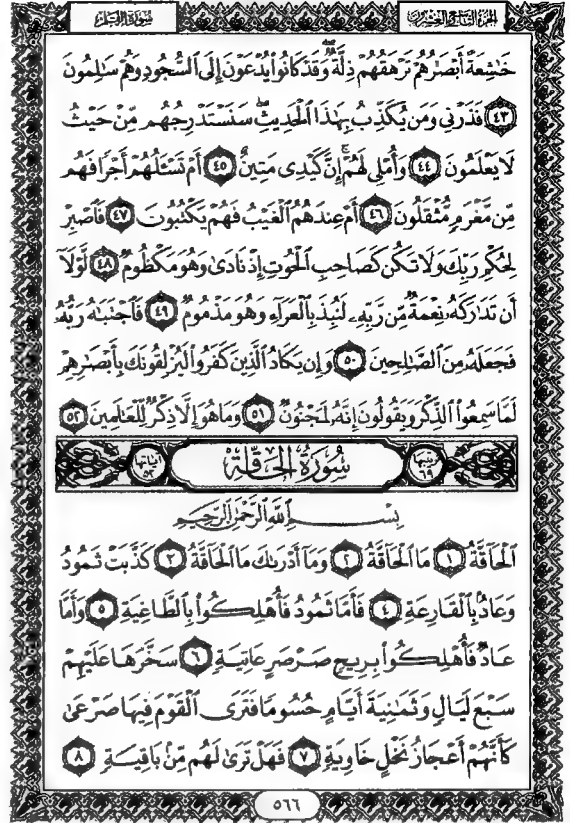 سُورَةُ القَلَمِ الجُزْءُ التَّاسِعُ وَالعِشْرُونَ
خَٰشِعَةً أَبْصَٰرُهُمْ تَرْهَقُهُمْ ذِلَّةٌ ۖ وَقَدْ كَانُوا۟ يُدْعَوْنَ إِلَى ٱلسُّجُودِ وَهُمْ سَٰلِمُونَ
٤٣ فَذَرْنِى وَمَن يُكَذِّبُ بِهَٰذَا ٱلْحَدِيثِ ۖ سَنَسْتَدْرِجُهُم مِّنْ حَيْثُ
لَا يَعْلَمُونَ ٤٤ وَأُمْلِى لَهُمْ ۚ إِنَّ كَيْدِى مَتِينٌ ٤٥ أَمْ تَسْـَٔلُهُمْ أَجْرًا فَهُم
مِّن مَّغْرَمٍ مُّثْقَلُونَ ٤٦ أَمْ عِندَهُمُ ٱلْغَيْبُ فَهُمْ يَكْتُبُونَ ٤٧ فَٱصْبِرْ
لِحُكْمِ رَبِّكَ وَلَا تَكُن كَصَاحِبِ ٱلْحُوتِ إِذْ نَادَىٰ وَهُوَ مَكْظُومٌ ٤٨ لَّوْلَآ
أَن تَدَٰرَكَهُۥ نِعْمَةٌ مِّن رَّبِّهِۦ لَنُبِذَ بِٱلْعَرَآءِ وَهُوَ مَذْمُومٌ ٤٩ فَٱجْتَبَٰهُ رَبُّهُۥ
فَجَعَلَهُۥ مِنَ ٱلصَّٰلِحِينَ ٥٠ وَإِن يَكَادُ ٱلَّذِينَ كَفَرُوا۟ لَيُزْلِقُونَكَ بِأَبْصَٰرِهِمْ
لَمَّا سَمِعُوا۟ ٱلذِّكْرَ وَيَقُولُونَ إِنَّهُۥ لَمَجْنُونٌ ٥١ وَمَا هُوَ إِلَّا ذِكْرٌ لِّلْعَٰلَمِينَ ٥٢
ترتيبها ٦٩ سُورَةُ الحَاقَّةِ آياتها ٥٢
بِسْمِ ٱللَّهِ ٱلرَّحْمَٰنِ ٱلرَّحِيمِ
ٱلْحَآقَّةُ ١ مَا ٱلْحَآقَّةُ ٢ وَمَآ أَدْرَىٰكَ مَا ٱلْحَآقَّةُ ٣ كَذَّبَتْ ثَمُودُ
وَعَادٌۢ بِٱلْقَارِعَةِ ٤ فَأَمَّا ثَمُودُ فَأُهْلِكُوا۟ بِٱلطَّاغِيَةِ ٥ وَأَمَّا
عَادٌ فَأُهْلِكُوا۟ بِرِيحٍ صَرْصَرٍ عَاتِيَةٍ ٦ سَخَّرَهَا عَلَيْهِمْ
سَبْعَ لَيَالٍ وَثَمَٰنِيَةَ أَيَّامٍ حُسُومًا فَتَرَى ٱلْقَوْمَ فِيهَا صَرْعَىٰ
كَأَنَّهُمْ أَعْجَازُ نَخْلٍ خَاوِيَةٍ ٧ فَهَلْ تَرَىٰ لَهُم مِّنۢ بَاقِيَةٍ ٨
٥٦٦